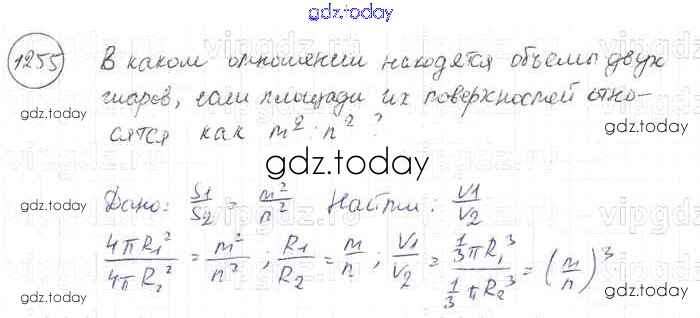 gdz.today
1255 В каком отношении находятся объемы двух
шаров, если площади их поверхностей отно-
сятся как m² : n² ?
gdz.today
gdz.today
gdz.today
Дано: S1/S2 = m²/n² Найти: V1/V2
4πR₁²/4πR₂² = m²/n² ; R1/R2 = m/n ; V1/V2 = 1/3πR₁³/1/3πR₂³ = (m/n)³
gdz.today
gdz.today